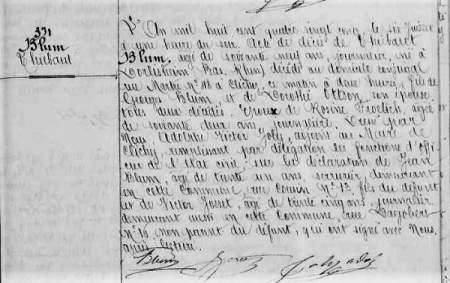 331
Blum
Thiebaut
L'An mil huit cent quatre vingt onze, le six Juillet
à une heure du soir. Acte de décès de Thiebaut
Blum, âgé de soixante neuf ans, journalier, né à
(Bas-Rhin) décédé au domicile conjugal
au Marché Nº à Clichy, ce matin à deux heures, fils de
Georges Blum et de Dorothé son épouse,
tous deux décédés. Epoux de Rosine Froelich, âgée
de soixante deux ans, journalière. Dressé par
Nous Adolphe Victor adjoint au Maire de
Clichy, remplissant par délégation les fonctions d'offi-
cier de l'état civil, sur les déclarations de Jean
Blum, âgé de trente un ans, serrurier demeurant
en cette Commune, rue Cousin Nº 13, fils du défunt
et de Victor Josset, âgé de trente cinq ans, journalier
demeurant aussi en cette Commune, rue
Nº 10 non parent du défunt, qui ont signé avec Nous,
après lecture.
Blum